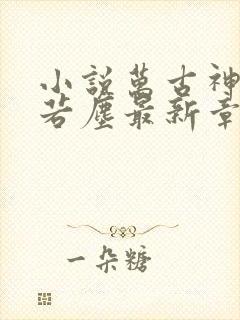 小説萬古神
若塵最新章
一朵糖